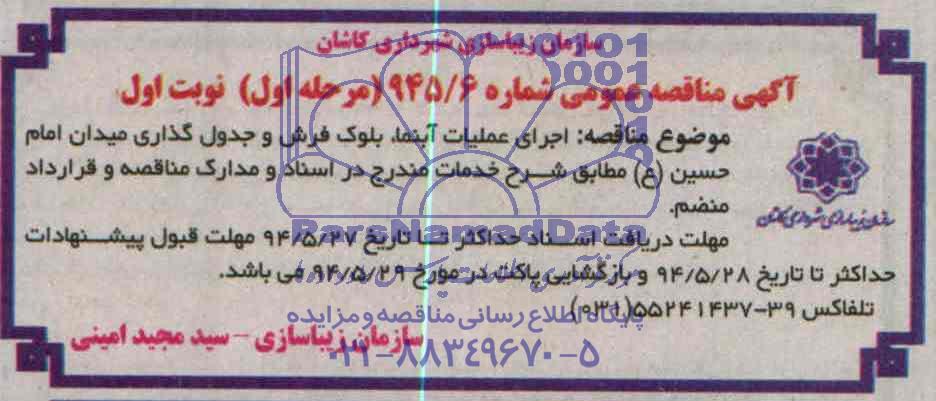 سازمان زیباسازی شهرداری کاشان
آگهی مناقصه عمومی شماره ۹۴۵/۶ (مرحله اول) نوبت اول
موضوع مناقصه: اجرای عملیات آبنما، بلوک فرش و جدول گذاری میدان امام
حسین (ع) مطابق شرح خدمات مندرج در اسناد و مدارک مناقصه و قرارداد
منضم.
سازمان زیباسازی شهرداری کاشان
مهلت دریافت اسناد حداکثر تا تاریخ ۹۴/۵/۲۷ مهلت قبول پیشنهادات
حداکثر تا تاریخ ۹۴/۵/۲۸ و بازگشایی پاکت در مورخ ۹۴/۵/۲۹ می باشد.
تلفاکس ۳۹-۵۵۲۴۱۴۳۷(۰۳۱)
سازمان زیباسازی - سید مجید امینی
ParsNamadData
پایگاه اطلاع رسانی مناقصه و مزایده
۰۲۱-۸۸۳۴۹۶۷۰-۵